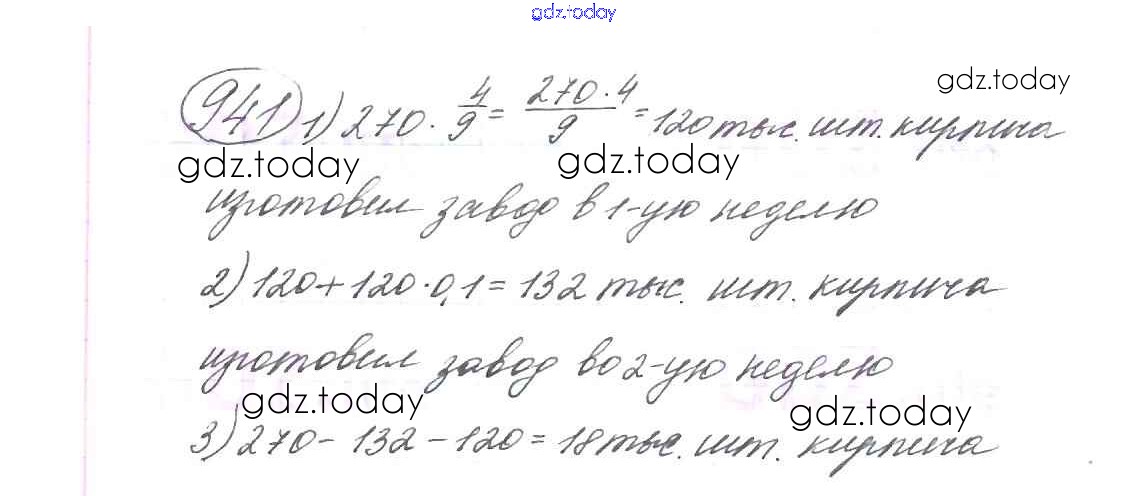 gdz.today
gdz.today
941 1) 270 · 4/9 = 270 · 4/9 = 120 тыс. шт. кирпича
gdz.today gdz.today
изготовил завод в 1-ую неделю
2) 120 + 120 · 0,1 = 132 тыс. шт. кирпича
изготовил завод во 2-ую неделю
gdz.today gdz.today
3) 270 - 132 - 120 = 18 тыс. шт. кирпича